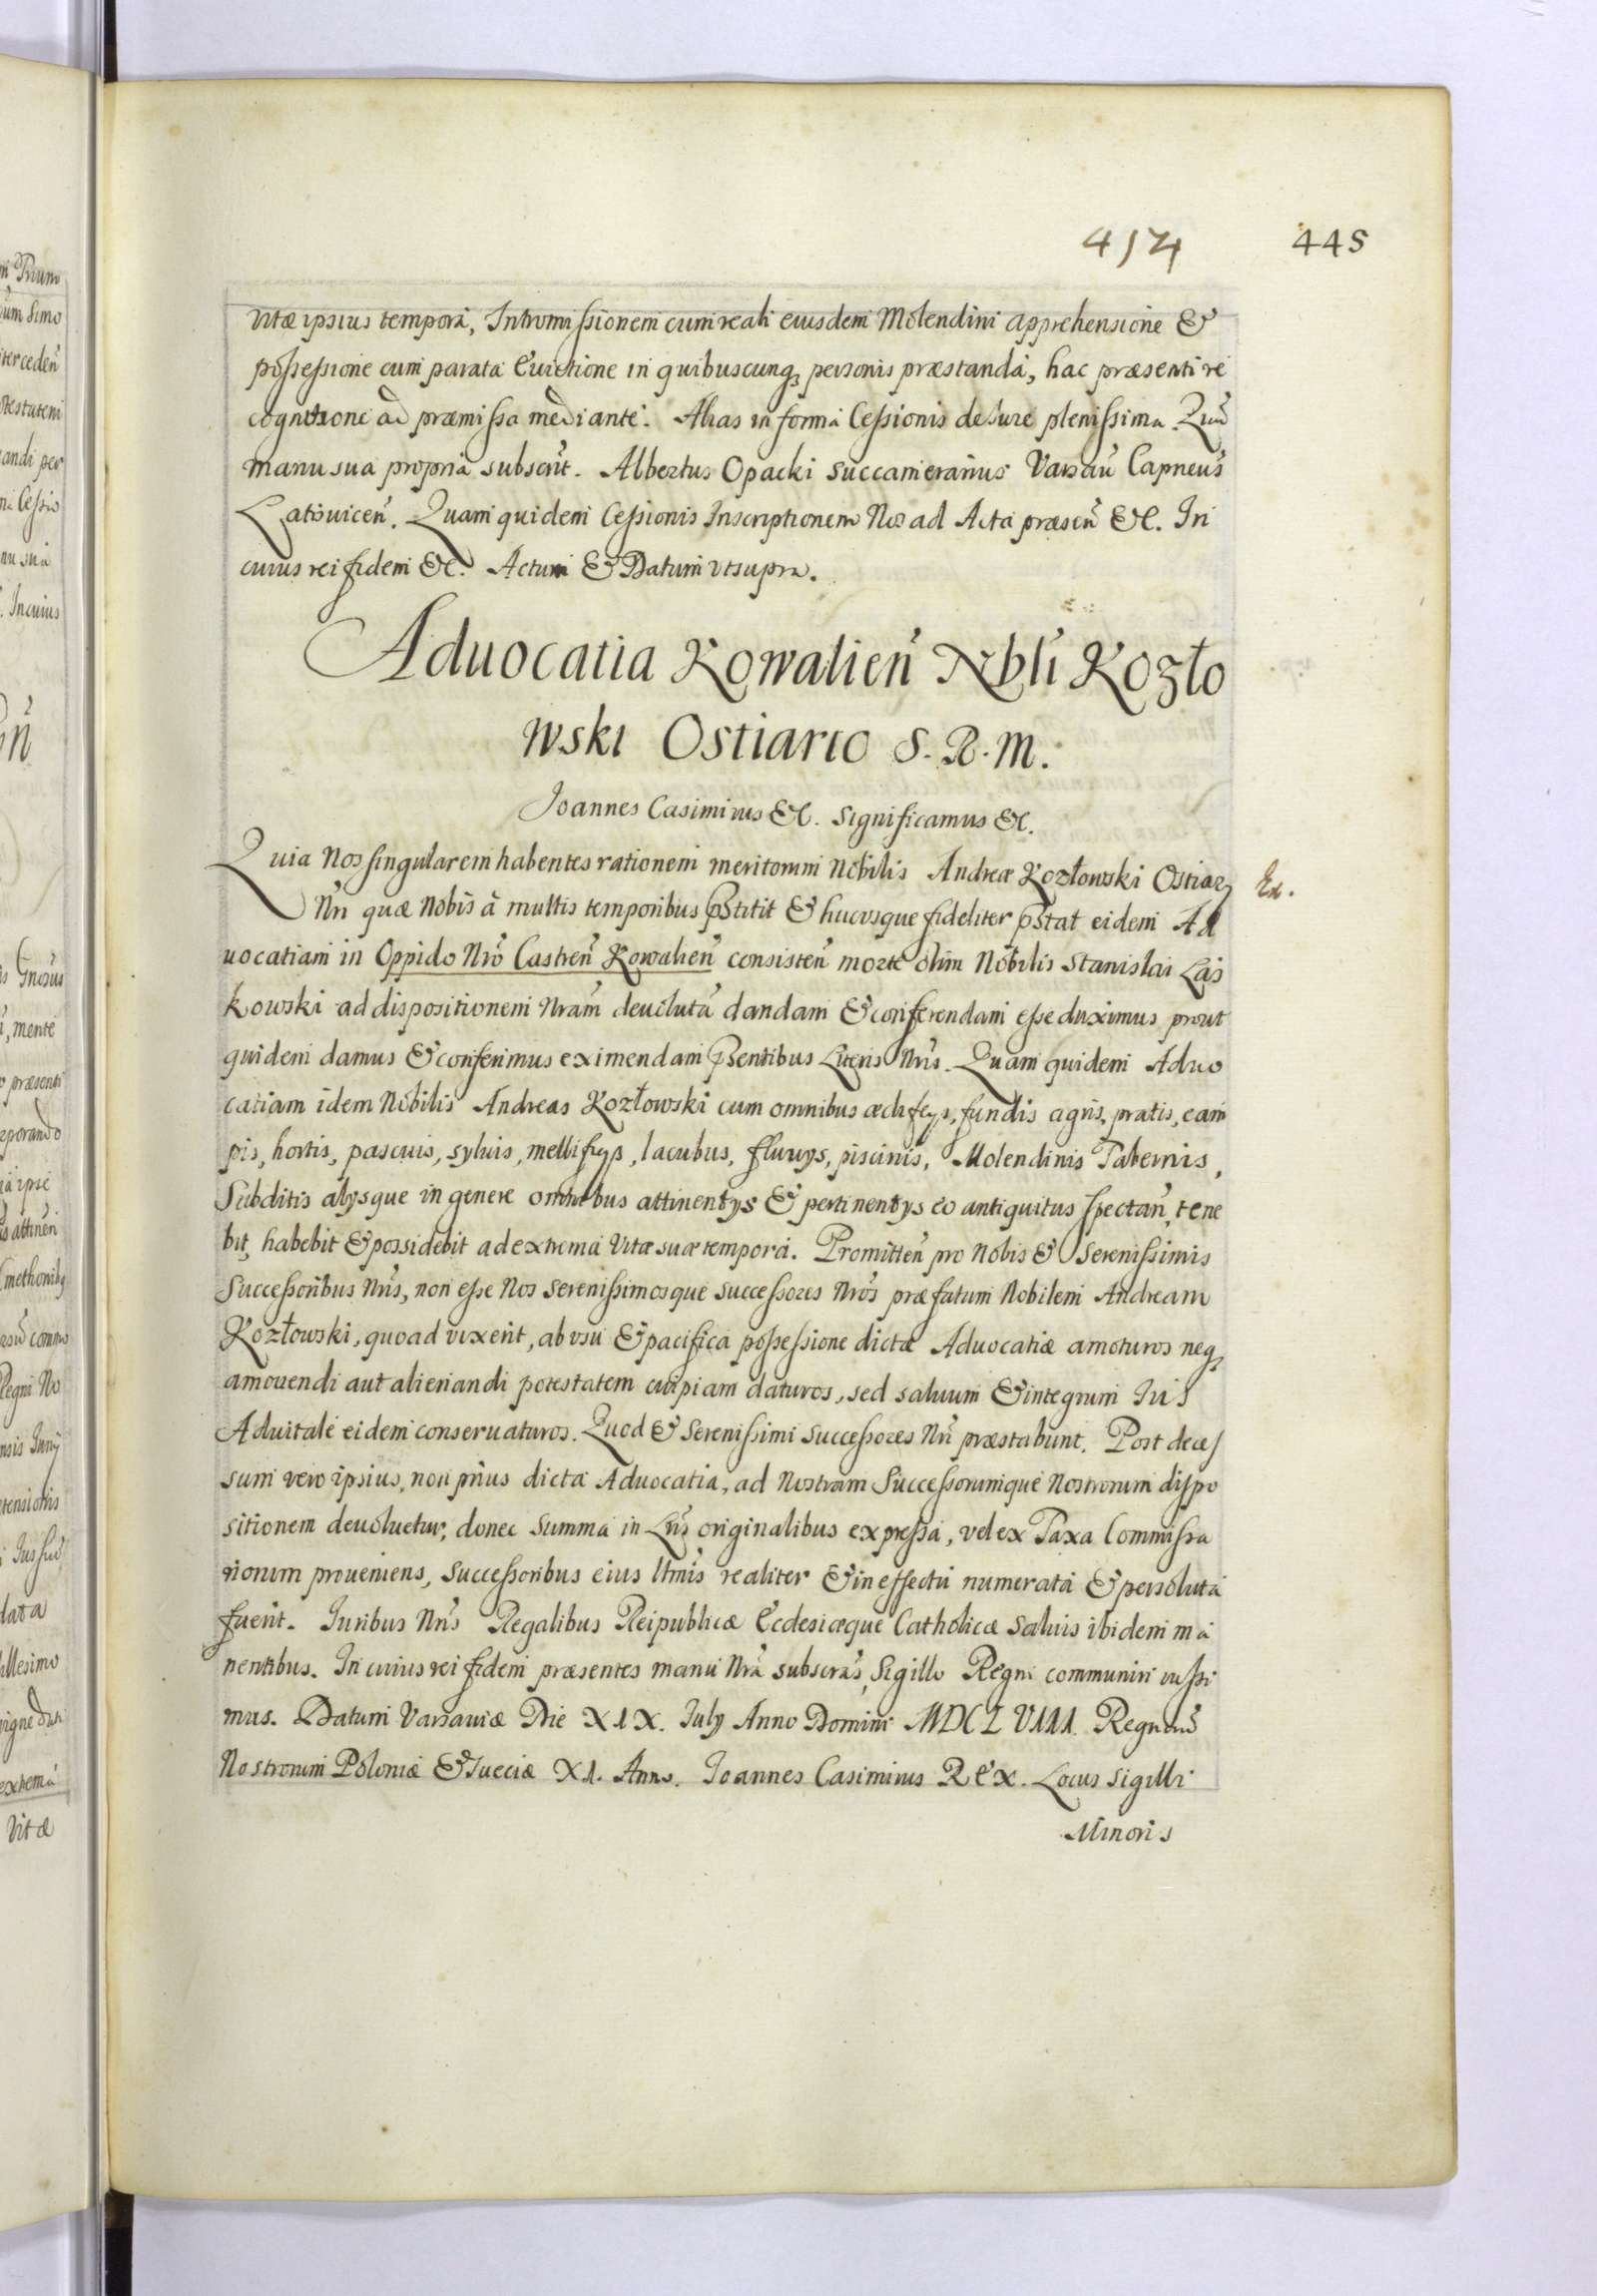 414 445
vitæ ipsius tempora, Intromissionem cum reali eiusdem Molendini apprehensione &
possessione cum parata Euictione in quibuscunq, personis præstanda, hac præsenti re
cognitione ad præmissa mediante. Alias in forma Cessionis de Iure plenissima. Quã
manu sua propria subscrit. Albertus Opacki Succamerarius Varsau Capneus
Latouicen. Quam quidem Cessionis Inscriptionem Nos ad Acta præsen &c. In
cuius rei fidem &c. Actum & Datum vt supra.
Aduocatia Kowalien Nbli Kozło
wski Ostiario S. R. M.
Ioannes Casimirus &c. Significamus &c.
Quia Nos singularem habentes rationem meritorum Nobilis Andreæ Kozłowski Ostiarz Ex.
Nri quæ Nobis à multis temporibus pstitit & hucusque fideliter pstat eidem Ad
uocatiam in Oppido Nro Castren Kowalien consisten morte olim Nobilis Stanislai Las
kowski ad dispositionem Nram deuolutã dandam & conferendam esse duximus prout
quidem damus & conferimus eximendam psentibus Literis Nris. Quam quidem Aduo
catiam idem Nobilis Andreas Kozłowski cum omnibus ædificys, fundis agris, pratis, cam
pis, hortis, pascuis, syluis, mellificys, lacubus, fluuys, piscinis, Molendinis Tabernis,
Subditis alysque in genere omnibus attinentys & pertinentys eo antiquitus spectan, tene
bit, habebit & possidebit ad extrema vitæ suæ tempora. Promitten pro Nobis & Serenissimis
Successoribus Nris, non esse Nos Serenissimosque successores Nros præfatum Nobilem Andream
Kozłowski, quoad vixerit, ab vsu & pacifica possessione dictæ Aduocatiæ amoturos neq,
amouendi aut alienandi potestatem cuipiam daturos, sed saluum & integrum Ius
Aduitale eidem conseruaturos. Quod & Serenissimi Successores Nri præstabunt. Post deces
sum vero ipsius, non prius dicta Aduocatia, ad Nostram Successorumque Nostrorum dispo
sitionem deuoluetur, donec Summa in Lris originalibus expressa, vel ex Taxa Commissa
riorum proueniens, successoribus eius ltmis realiter & in effectu numerata & persoluta
fuerit. Iuribus Nris Regalibus Reipublicæ Ecclesiæque Catholicæ saluis ibidem ma
nentibus. In cuius rei fidem præsentes manu Nra subscras, Sigillo Regni communiri iussi
mus. Datum Varsauiæ Die XIX. July Anno Domini MDCLVIII. Regnorũ
Nostrorum Poloniæ & Sueciæ XI. Anno. Ioannes Casimirus Rex. Locus Sigilli
Minoris